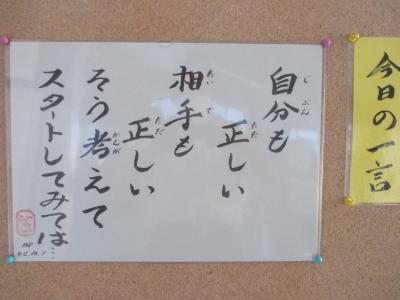 今日の一言
自分も
正しい
相手も
正しい
そう考えて
スタートしてみては…
じ ぶん
ただ
あい て
ただ
かんが